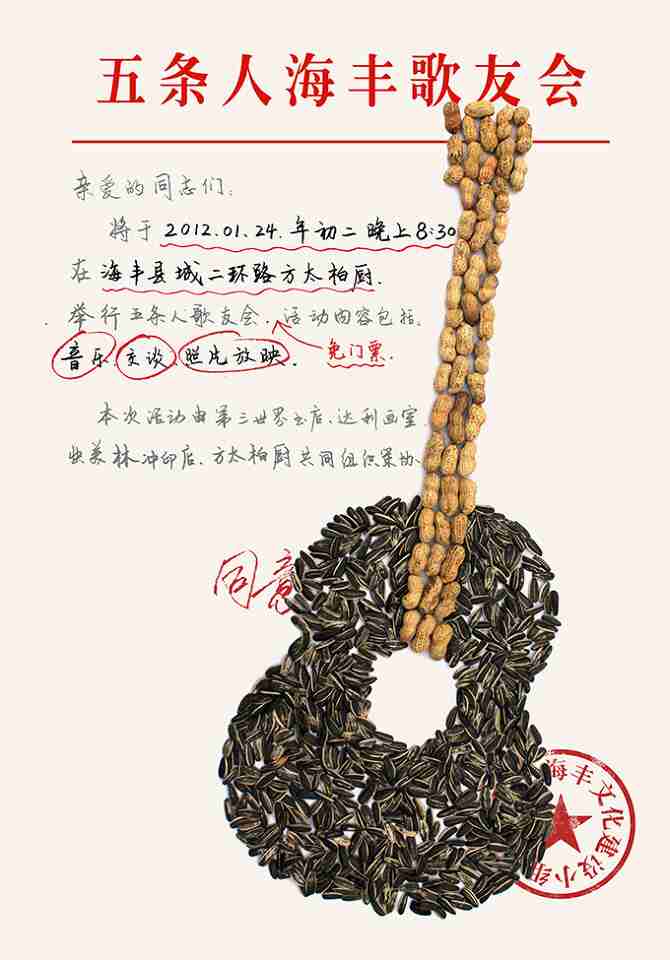 五条人海丰歌友会
亲爱的同志们：
将于 2012.01.24. 年初二 晚上8:30
在 海丰县城二环路方太柏厨.
举行五条人歌友会. 活动内容包括.
音乐. 交谈. 照片放映. 免门票.
本次活动由第三世界书店、达利画室
央美林冲印店、方太柏厨共同组织策协
同意
海丰文化建设小组